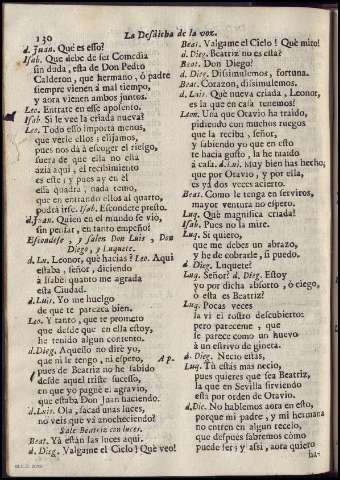 130
La Desdicha de la voz.
d. Juan. Què es esso?
Isab. Que debe de ser Comedia
sin duda, esta de Don Pedro
Calderon, que hermano, ò padre
siempre vienen à mal tiempo,
y aora vienen ambos juntos.
Leo. Entrate en esse aposento.
Isab. Si le vee la criada nueva?
Leo. Todo esso importa menos,
que verle ellos; elijamos,
pues nos dà à escoger el riesgo,
fuera de que ella no està
azia aqui, el recibimiento
es este; y pues ay en èl
essa quadra, nada temo,
que en entrando ellos al quarto,
podrà irse. Isab. Escondete presto.
d. Juan. Quien en el mundo se viò,
sin pensar, en tanto empeño!
Escondese, y salen Don Luis, Don
Diego, y Luquete.
d. Lu. Leonor, què hacias? Leo. Aqui
estaba, señor, diciendo
à Isabèl quanto me agrada
esta Ciudad.
d. Luis. Yo me huelgo
de que te parezca bien.
Leo. Y tanto, que te prometo
que desde que en ella estoy,
he tenido algun contento.
d. Dieg. Aquesso no dirè yo,
que ni le tengo, ni espero, Ap.
pues de Beatriz no he sabido
desde aquel triste sucesso,
en que yo paguè el agravio,
que estaba Don Juan haciendo.
d. Luis. Ola, sacad unas luces,
no veis que và anocheciendo?
Sale Beatriz con luces.
Beat. Yà estàn las luces aqui.
d. Dieg. Valgame el Cielo! Què veo!
Beat. Valgame el Cielo! Què miro!
d. Dieg. Beatriz no es ella?
Beat. Don Diego?
d. Dieg. Dissimulemos, fortuna.
Beat. Corazon, dissimulemos.
d. Luis. Què nueva criada, Leonor,
es la que en casa tenemos?
Leon. Una que Otavio ha traido,
pidiendo con muchos ruegos
que la reciba, señor,
y sabiendo yo que en esto
te hacia gusto, la he traido
à casa. d. Lui. Muy bien has hecho,
que por Otavio, y por ella,
es yà dos veces acierto.
Beat. Como le tenga en serviros,
mayor ventura no espero.
Luq. Què magnifica criada!
Isab. Pues no la mire.
Luq. Si quiero,
que me debes un abrazo,
y he de cobrarle, si puedo.
d. Dieg. Luquete?
Luq. Señor? d. Dieg. Estoy
yo por dicha absorto, ò ciego,
ò esta es Beatriz?
Luq. Pocas veces
la vì el rostro descubierto:
pero pareceme, que
se parece como un huevo
à un estrivo de gineta.
d. Dieg. Necio estàs,
Luq. Tù estàs mas necio,
pues quieres que sea Beatriz,
la que en Sevilla sirviendo
està por orden de Otavio.
d. Die. No hablemos aora en esto,
porque mi padre, y mi hermana
no entren en algun recelo,
que despues sabrèmos cómo
puede ser; y assi, aora quiero
ha-